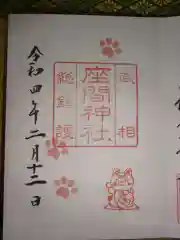 相国
座間神社
総鎮護
令和四年二月十二日